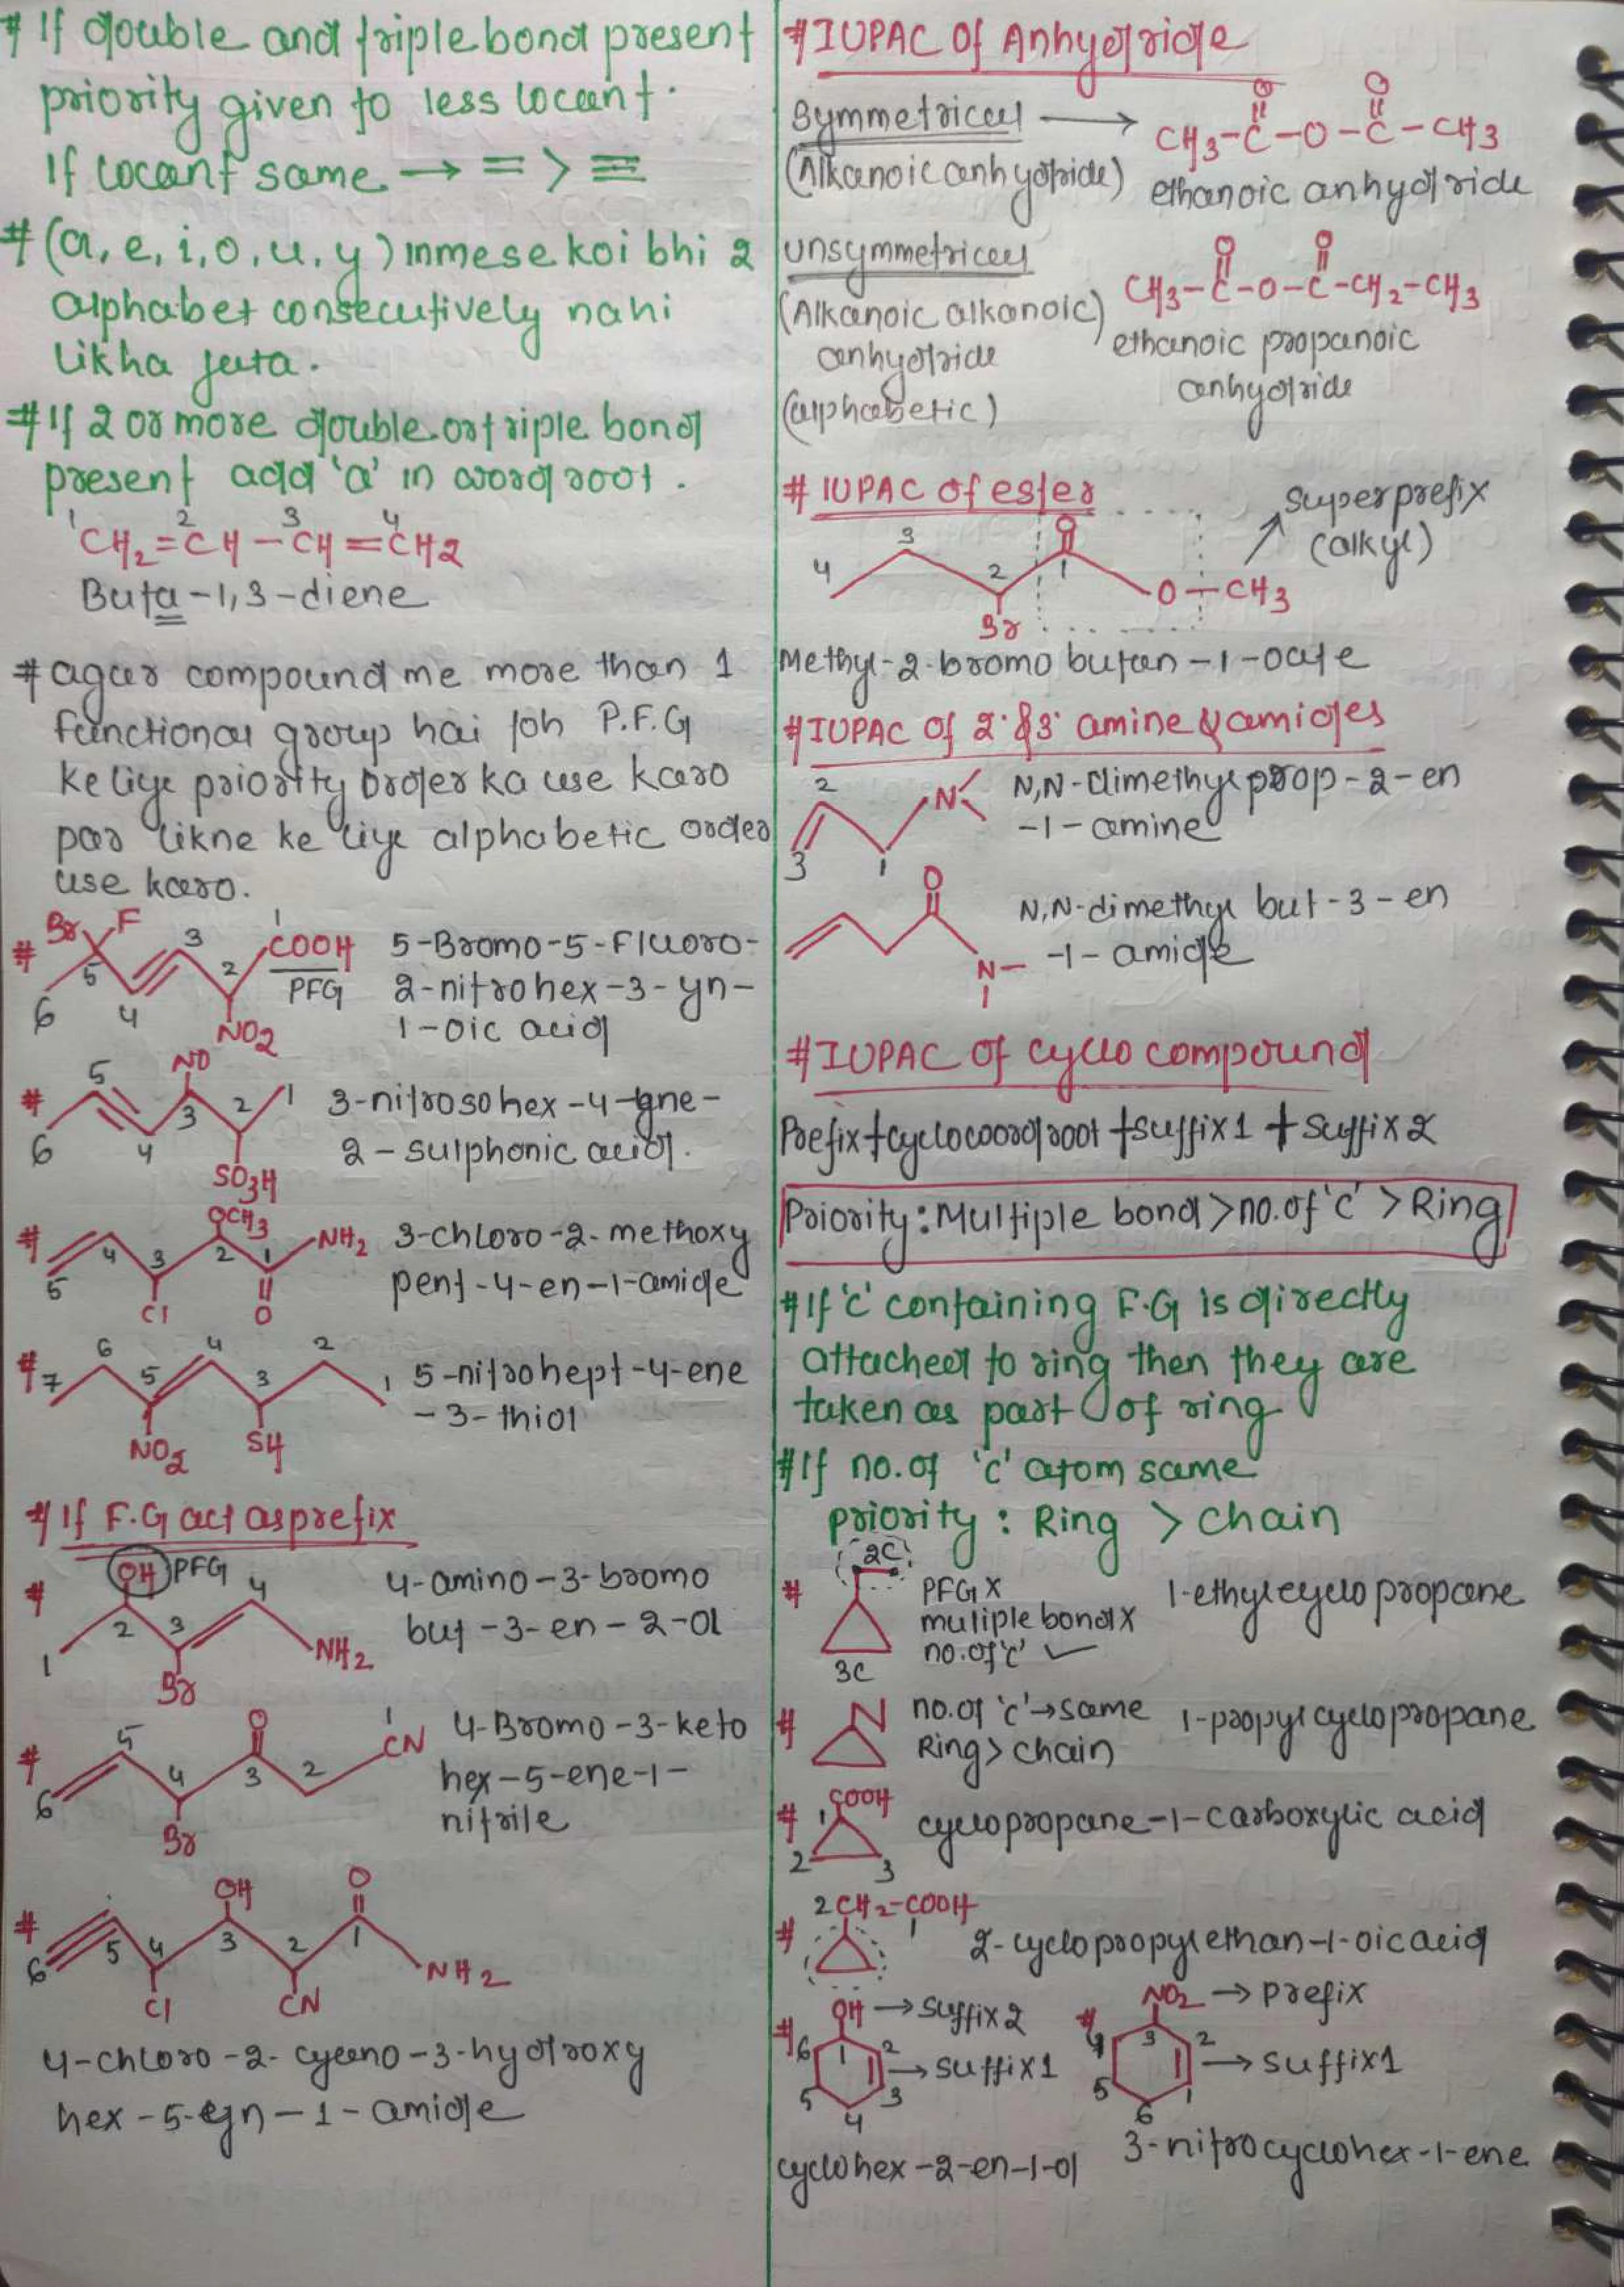 # If double and triple bond present
priority given to less locant.
If locant same → = > ≡
# (a, e, i, o, u, y) inmese koi bhi 2
alphabet consecutively nahi
likha jata.
# If 2 or more double or triple bond
present add 'a' in word root.
1 2 3 4
CH2=CH—CH=CH2
Buta-1,3-diene
# agar compound me more than 1
functional group hai joh P.F.G
ke liye priority order ka use karo
par likne ke liye alphabetic order
use karo.
# Br F 3 1 COOH PFG 5 2 6 4 NO2
5-Bromo-5-Fluoro-
2-nitrohex-3-yn-
1-oic acid
# 5 NO 1 3 2 6 4 SO3H
3-nitrosohex-4-yne-
2-sulphonic acid.
# OCH3 NH2 4 3 2 1 5 Cl O
3-chloro-2-methoxy
pent-4-en-1-amide
# 7 6 5 4 3 2 1 NO2 SH
5-nitrohept-4-ene
-3-thiol
# If F.G act as prefix
# OH PFG 4 2 3 1 NH2 Br
4-amino-3-bromo
but-3-en-2-ol
# 5 O 1 CN 4 3 2 6 Br
4-Bromo-3-keto
hex-5-ene-1-
nitrile
# OH O 6 5 4 3 2 1 NH2 Cl CN
4-chloro-2-cyano-3-hydroxy
hex-5-yn-1-amide
# IUPAC Of Anhydride
Symmetrical → CH3-C-O-C-CH3
O O
(Alkanoic anhydride) ethanoic anhydride
Unsymmetrical
O O
CH3-C-O-C-CH2-CH3
(Alkanoic alkanoic)
anhydride
(alphabetic)
ethanoic propanoic
anhydride
# IUPAC of ester
Superprefix
(alkyl)
4 3 2 1 O O-CH3 Br
Methyl-2-bromo butan-1-oate
# IUPAC of 2° & 3° amine & amides
2 N 3 1
N,N-dimethyl prop-2-en
-1-amine
O N
N,N-dimethyl but-3-en
-1-amide
# IUPAC Of cyclo compound
Prefix+cyclowordroot+suffix1+suffix2
Priority: Multiple bond > no.of 'c' > Ring
# If 'c' containing F.G is directly
attached to ring then they are
taken as part of ring
# If no.of 'c' atom same
priority : Ring > chain
# 2C 3C
PFG X
muliple bond X
no.of 'c' ✓
1-ethylcyclopropane
# no.of 'c'→same
Ring>chain
1-propylcyclopropane
# COOH 1 2 3
cyclopropane-1-carboxylic acid
# 2CH2-COOH 1
2-cyclopropylethan-1-oic acid
# OH → suffix2
6 1 2 → suffix1
5 3
4
cyclohex-2-en-1-ol
# NO2 → prefix
4 3 2 → suffix1
5 1
6
3-nitrocyclohex-1-ene